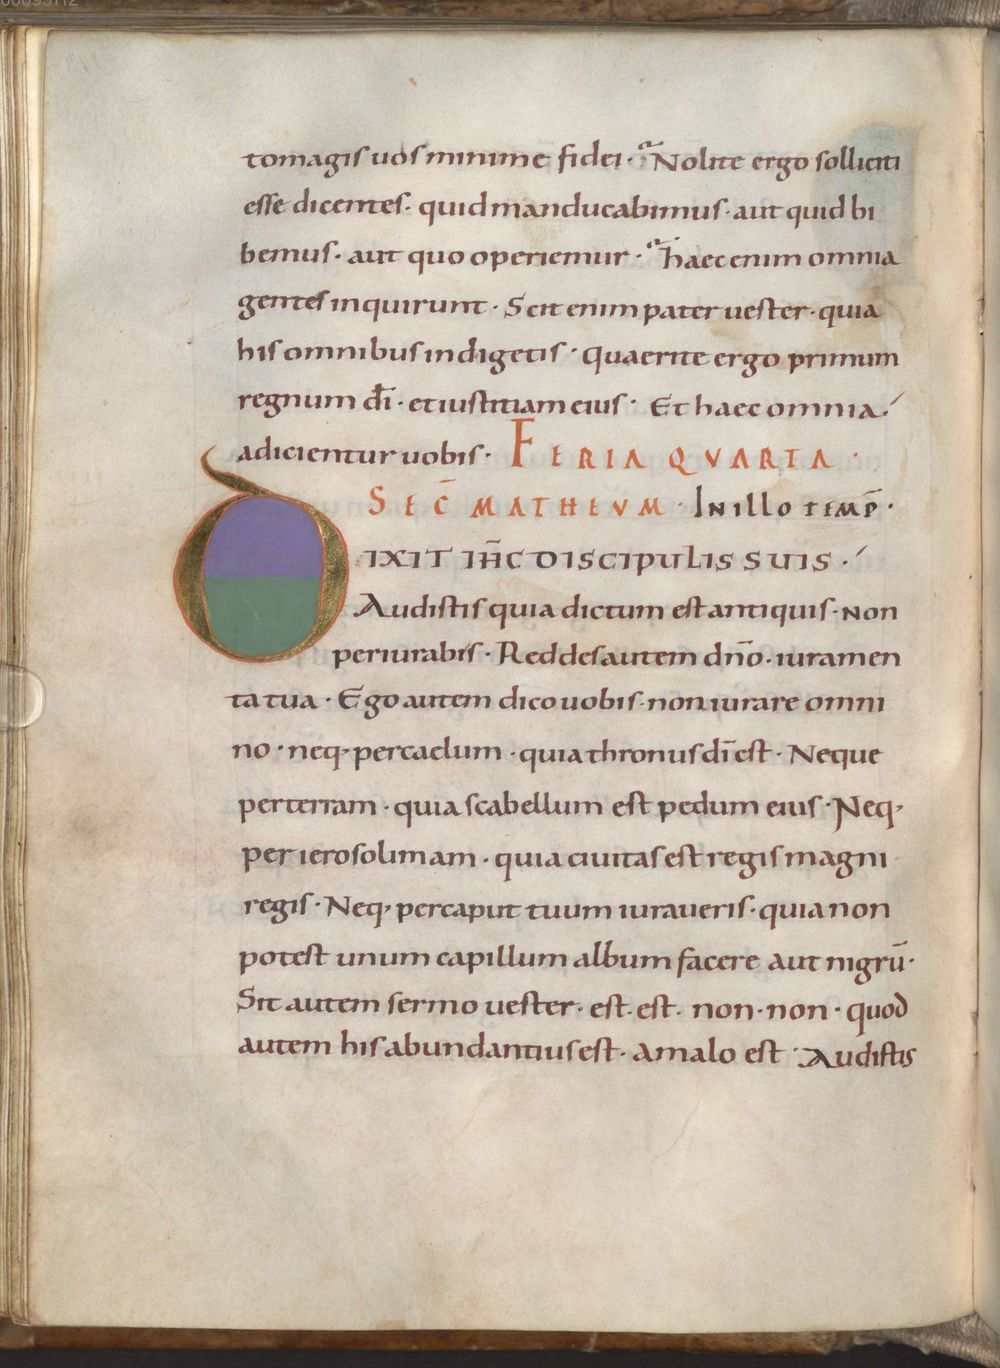 to magis uos minime fidei · Nolite ergo solliciti
esse dicentes · quid manducabimus · aut quid bi
bemus · aut quo operiemur · haec enim omnia
gentes inquirunt · Scit enim pater uester · quia
his omnibus indigetis · Quaerite ergo primum
regnum dī · et iustitiam eius · Et haec omnia ·
adicientur uobis · FERIA QVARTA ·
SEC̄ MATHEVM · In illo temp̄ ·
DIXIT IH̄C DISCIPULIS SUIS ·
Audistis quia dictum est antiquis · non
periurabis · Reddes autem dn̄o · iuramen
ta tua · Ego autem dico uobis · non iurare omni
no · neq; per caelum · quia thronus dī est · Neque
per terram · quia scabellum est pedum eius · Neq;
per ierosolimam · quia ciuitas est regis magni
regis · Neq; per caput tuum iuraueris · quia non
potest unum capillum album facere aut nigrū ·
Sit autem sermo uester · est · est · non · non · quod
autem his abundantius est · a malo est · Audistis